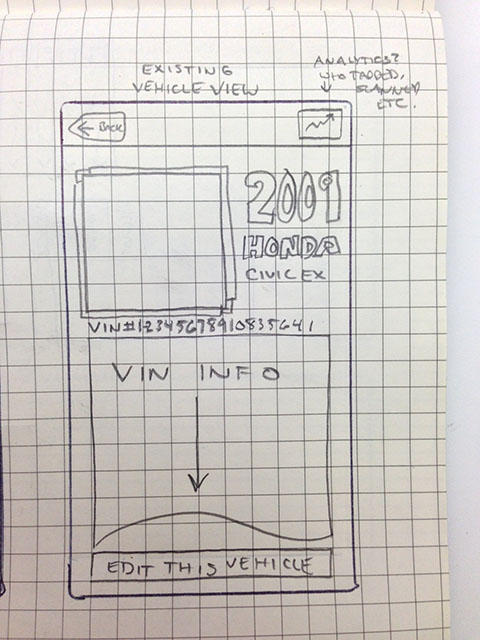 EXISTING
VEHICLE VIEW
ANALYTICS?
WHO TAGGED,
SCANNED
ETC.
BACK
2009
HONDA
CIVIC EX
VIN#12345678910835641
VIN INFO
EDIT THIS VEHICLE